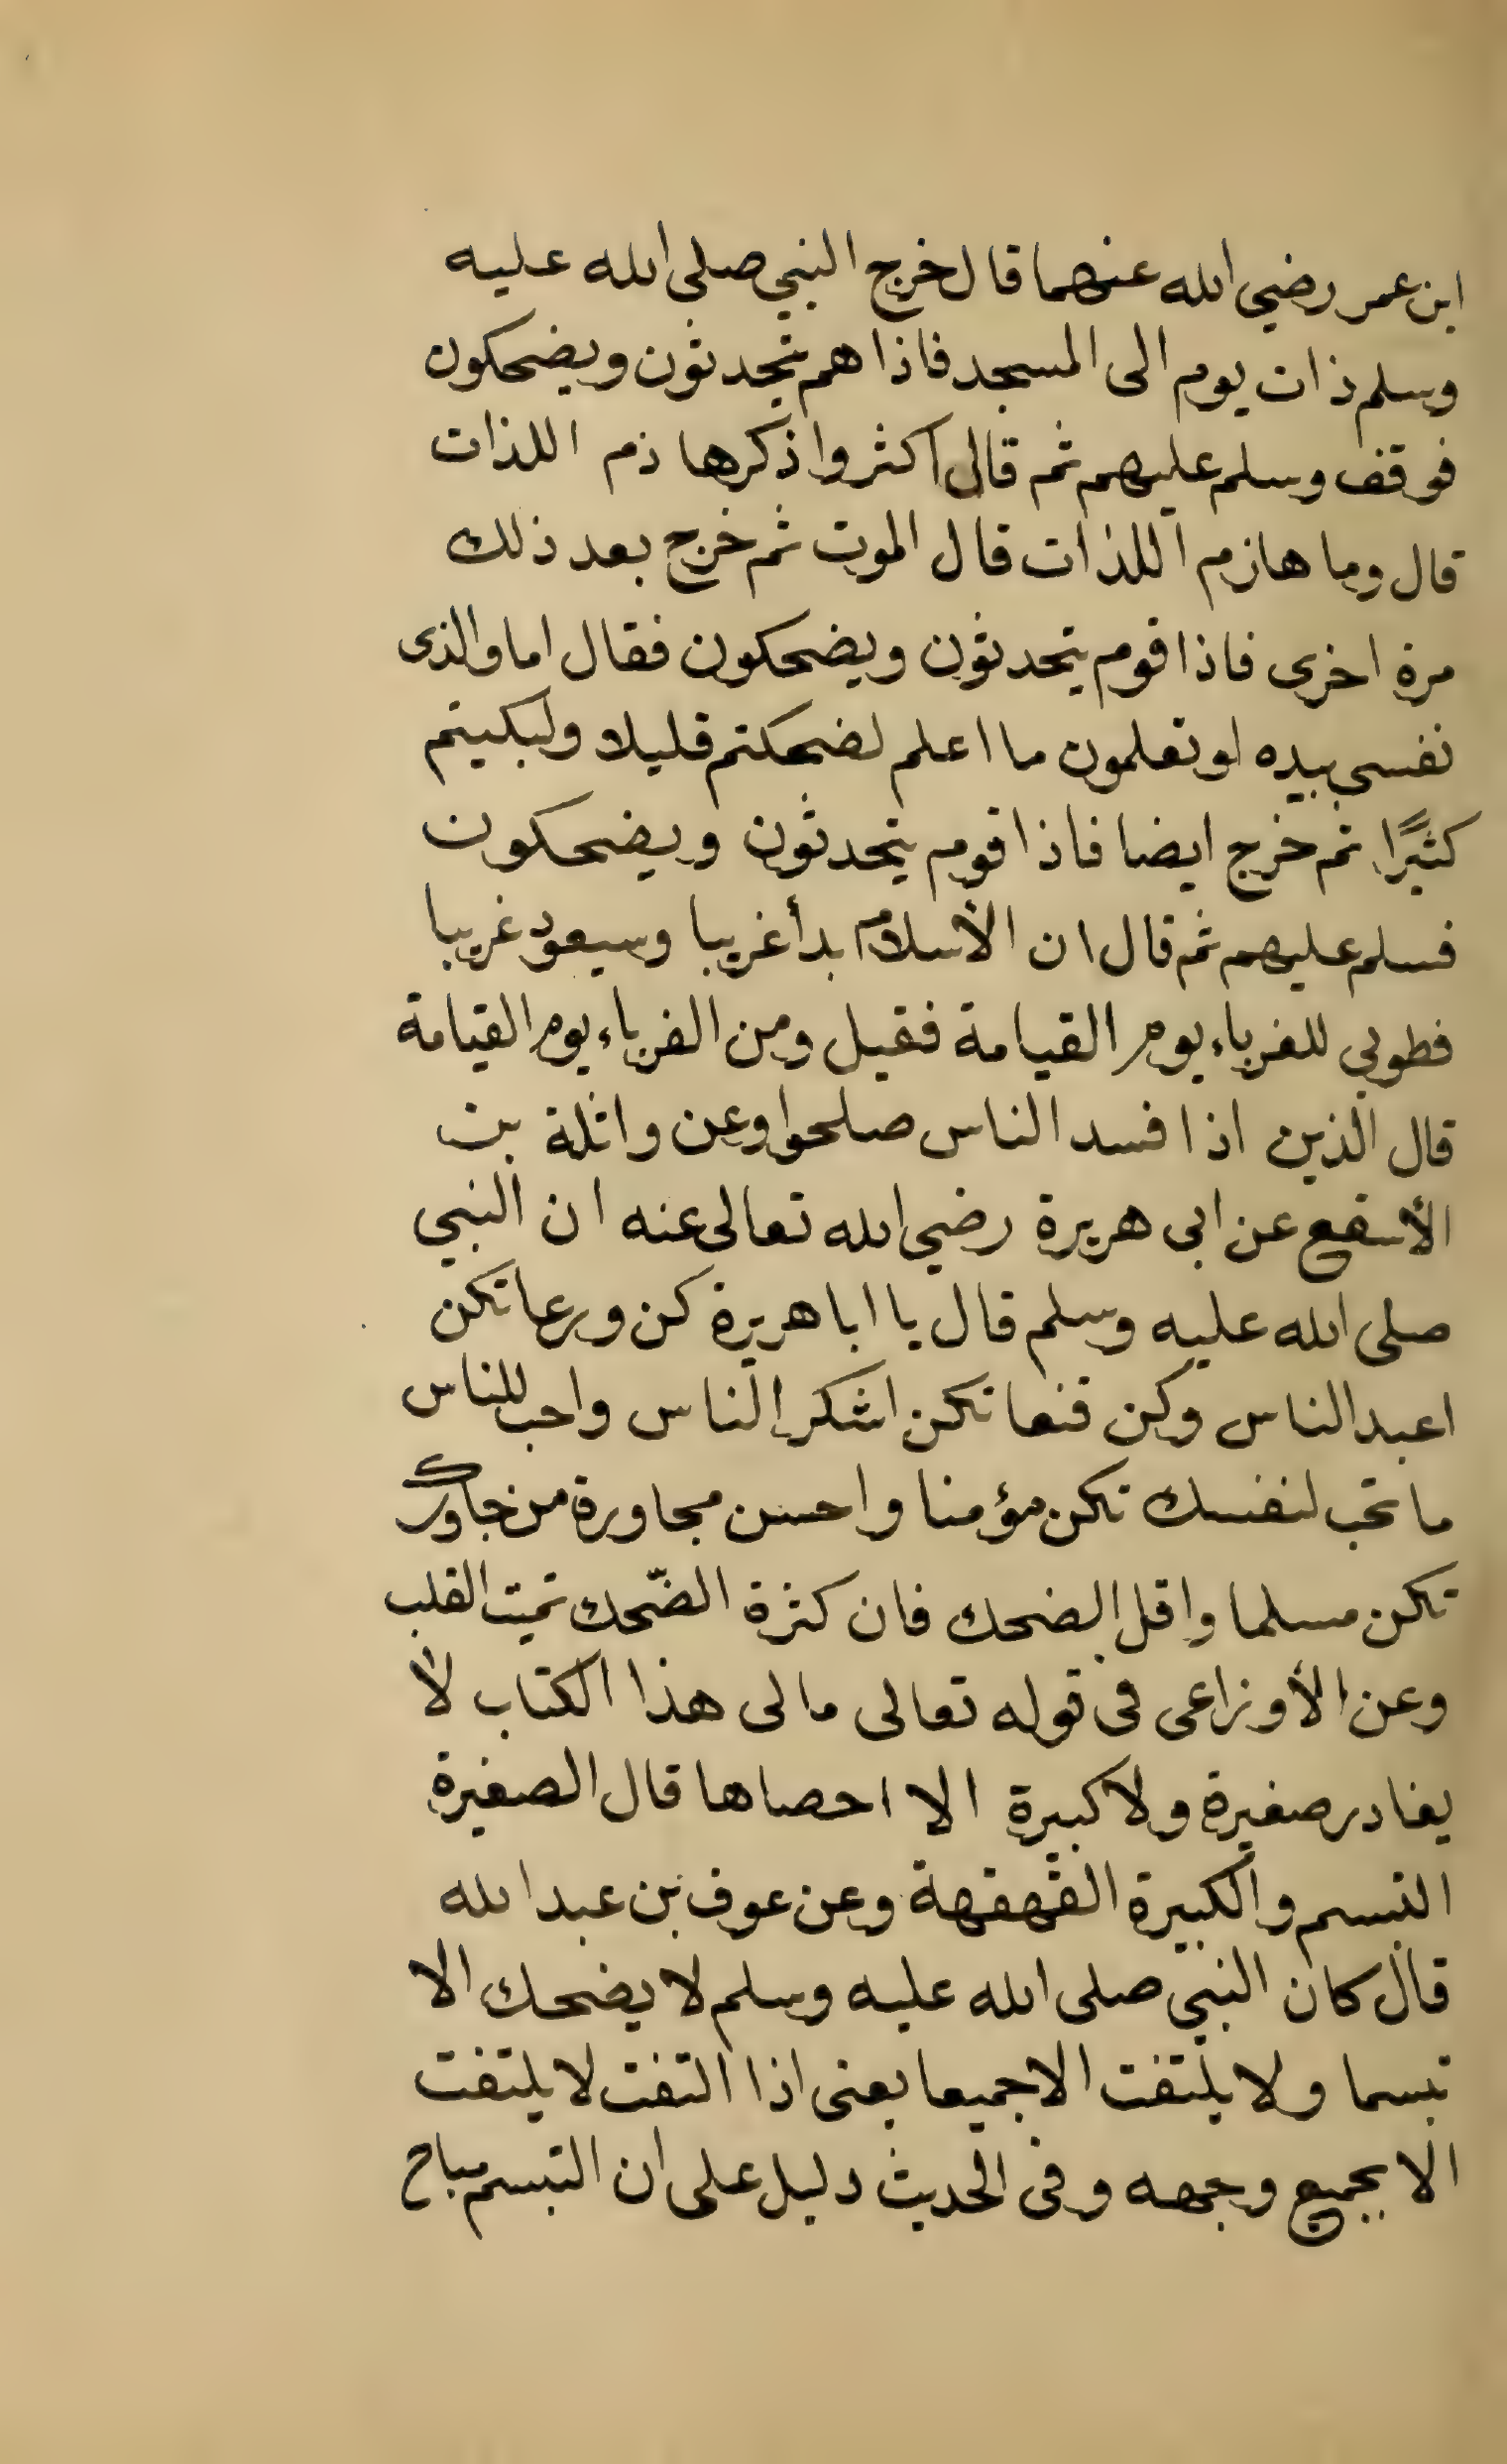 ابن عمر رضي الله عنهما قال خرج النبي صلى الله عليه
وسلم ذات يوم الى المسجد فاذا هم يتحدثون ويضحكون
فوقف وسلم عليهم ثم قال اكثروا ذكر هاذم اللذات
قال وما هازم اللذات قال الموت ثم خرج بعد ذلك
مرة اخرى فاذا قوم يتحدثون ويضحكون فقال اما والذى
نفسي بيده لو تعلمون ما اعلم لضحكتم قليلا ولبكيتم
كثيرًا ثم خرج ايضا فاذا قوم يتحدثون ويضحكون
فسلم عليهم ثم قال ان الأسلام بدأ غريبا وسيعود غريبا
فطوبي للغرباء يوم القيامة فقيل ومن الغرباء يوم القيامة
قال الذين اذا فسد الناس صلحوا وعن واثلة بن
الأسقع عن ابى هريرة رضي الله تعالى عنه ان النبي
صلى الله عليه وسلم قال يا ابا هريرة كن ورعا تكن
اعبد الناس وكن قنعا تكن اشكر الناس واحب للناس
ما تحب لنفسك تكن مؤمنا واحسن مجاورة من جاورك
تكن مسلما واقل الضحك فان كثرة الضّحك تميت القلب
وعن الأوزاعى فى قوله تعالى مالى هذا الكتاب لا
يغادر صغيرة ولا كبيرة الا احصاها قال الصغيرة
التبسم والكبيرة القهقهة وعن عوف بن عبد الله
قال كان النبي صلى الله عليه وسلم لا يضحك الا
تبسما ولا يلتفت الا جميعا يعنى اذا التفت لا يلتفت
الا بجميع وجهه وفى الحديث دليل على ان التبسم مباح